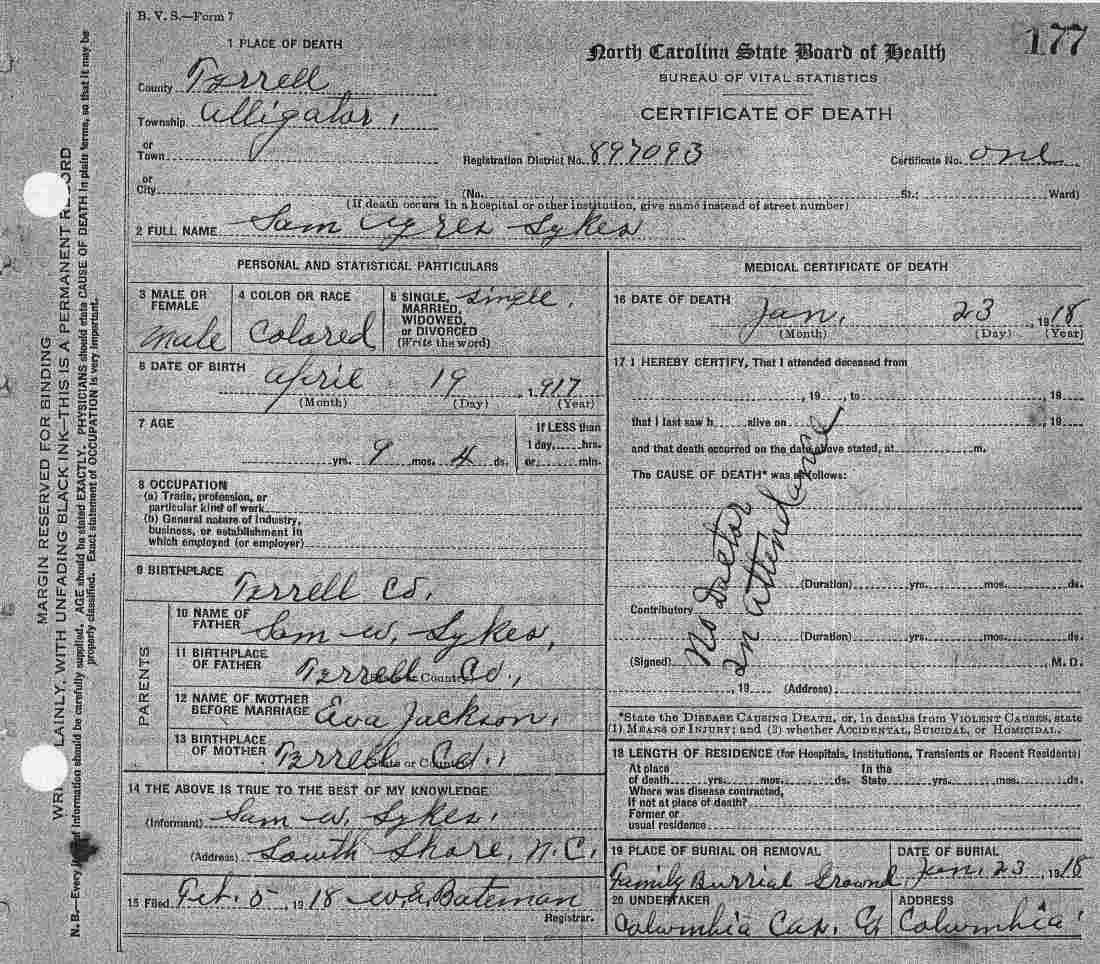 B. V. S.—Form 7
177
North Carolina State Board of Health
BUREAU OF VITAL STATISTICS
CERTIFICATE OF DEATH
1 PLACE OF DEATH
County Tyrrell
Township Alligator,
or
Town
Registration District No. 897093 Certificate No. one
or
City (No. St.; Ward)
(If death occurs in a hospital or other institution, give name instead of street number)
2 FULL NAME Sam Ayres Sykes
PERSONAL AND STATISTICAL PARTICULARS
3 MALE OR
FEMALE
Male
4 COLOR OR RACE
Colored
5 SINGLE,
MARRIED,
WIDOWED,
or DIVORCED
(Write the word)
single,
6 DATE OF BIRTH
April 19, 1917
(Month) (Day) (Year)
7 AGE
yrs. 9 mos. 4 ds.
If LESS than
1 day, hrs.
or min.
8 OCCUPATION
(a) Trade, profession, or
particular kind of work
(b) General nature of industry,
business, or establishment in
which employed (or employer)
9 BIRTHPLACE
Tyrrell Co.
PARENTS
10 NAME OF
FATHER
Sam W. Sykes,
11 BIRTHPLACE
OF FATHER
(State or Country)
Tyrrell Co.,
12 NAME OF MOTHER
BEFORE MARRIAGE
Eva Jackson,
13 BIRTHPLACE
OF MOTHER
(State or Country)
Tyrrell Co.,
14 THE ABOVE IS TRUE TO THE BEST OF MY KNOWLEDGE
(Informant) Sam W. Sykes,
(Address) South Shore, N.C.
15 Filed Feb. 5, 1918 W.E. Bateman
Registrar.
MEDICAL CERTIFICATE OF DEATH
16 DATE OF DEATH
Jan. 23, 1918
(Month) (Day) (Year)
17 I HEREBY CERTIFY, That I attended deceased from
, 19 , to , 19
that I last saw h alive on , 19
and that death occurred on the date above stated, at m.
The CAUSE OF DEATH* was as follows:
No Doctor
in attendance
(Duration) yrs. mos. ds.
Contributory
(Duration) yrs. mos. ds.
(Signed) , M. D.
, 19 (Address)
*State the DISEASE CAUSING DEATH, or, in deaths from VIOLENT CAUSES, state
(1) MEANS OF INJURY; and (2) whether ACCIDENTAL, SUICIDAL, or HOMICIDAL.
18 LENGTH OF RESIDENCE (for Hospitals, Institutions, Transients or Recent Residents)
At place In the
of death yrs. mos. ds. State yrs. mos. ds.
Where was disease contracted,
If not at place of death?
Former or
usual residence
19 PLACE OF BURIAL OR REMOVAL
Family Burrial Ground
DATE OF BURIAL
Jan. 23, 1918
20 UNDERTAKER
Columbia Cas. Co
ADDRESS
Columbia
MARGIN RESERVED FOR BINDING
WRITE PLAINLY, WITH UNFADING BLACK INK—THIS IS A PERMANENT RECORD
N. B.—Every of information should be carefully supplied. AGE should be stated EXACTLY. PHYSICIANS should state CAUSE OF DEATH in plain terms, so that it may be
properly classified. Exact statement of OCCUPATION is very important.